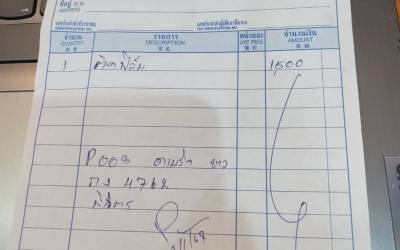 ที่อยู่
ADDRESS
เลขประจำตัวประชาชน
IDENTIFICATION NO.
เลขประจำตัวผู้เสียภาษีอากร
TAX IDENTIFICATION NO.
จำนวน รายการ หน่วยละ จำนวนเงิน
QUANTITY DESCRIPTION UNIT PRICE AMOUNT
1 ติดฟิล์ม 1,500
P003
กง 4762
พิจิตร